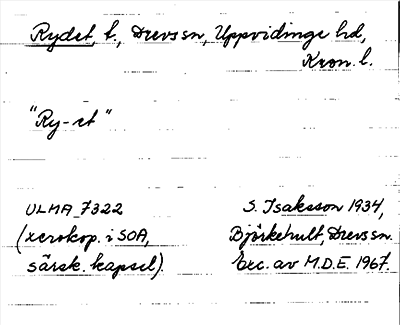 Rydet, t., Drevs sn, Uppvidinge hd,
Kron. l.
"Ry-et"
ULMA 7322
(xerokop. i SOA,
särsk. kapsel).
S. Isaksson 1934,
Björkehult, Drevs sn.
Exc. av M.D.E. 1967.